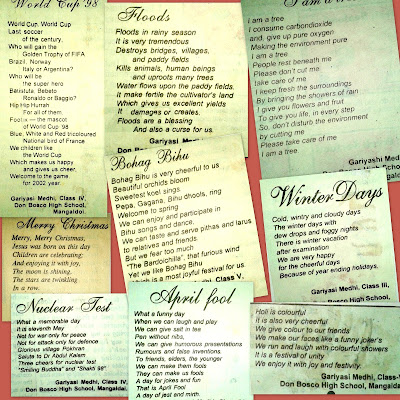 World Cup '98
World Cup, World Cup
Last soccer
of the century,
Who will gain the
Golden Trophy of FIFA
Brazil, Norway
Italy or Argentina?
Who will be
the super hero
Batistuta, Bebeto
Ronaldo or Baggio?
Hip Hip Hurrah
For all of them.
Footix — the mascot
of World Cup '98
Blue, White and Red tricoloured
National bird of France
We children like
the World Cup
Which makes us happy
and gives us cheer,
Welcome to the game
for 2002 year.
Gariyasi Medhi, Class IV,
Don Bosco High School,
Mangaldoi.
Floods
Floods in rainy season
It is very tremendous
Destroys bridges, villages,
and paddy fields
Kills animals, human beings
and uproots many trees
Water flows upon the paddy fields,
It make fertile the cultivator's land
Which gives us excellent yields
It damages or creates.
Floods are a blessing
And also a curse for us.
Gariyasi Medhi,
Don
I am a tree
I consume carbondioxide
and, give up pure oxygen
Making the environment pure
I am a tree
People rest beneath me
Please don't cut me
take care of me
I keep fresh the surroundings
By bringing the showers of rain
I give you flowers and fruit
To give you life, in every step
So, don't disturb the environment
by cutting me
Please take care of me
I am a tree.
Gariyasi Medhi,
Don Bosco High School,
Mangaldoi
Bohag Bihu
Bohag Bihu is very cheerful to us
Beautiful orchids bloom
Sweetest koel sings
Pepa, Gagana, Bihu dhools, ring
Welcome to spring
We can enjoy and participate in
Bihu songs and dance.
We can taste and serve pithas and larus
to relatives and friends
But we fear too much
"The Bardoichila", that furious wind
Yet we like Bohag Bihu
Which is a most joyful festival for us
Medhi, Class V,
Winter Days
Cold, wintry and cloudy days
The winter days with
dew drops and foggy nights
There is winter vacation
after examination
We are very happy
for the cheerful days
Because of year ending holidays.
Gariyasi Medhi, Class III,
Don Bosco High School,
Merry Christmas
Merry, Merry Christmas,
Jesus was born on this day
Children are celebrating;
And enjoying it with joy,
The moon is shining,
The stars are twinkling
In a row.
Nuclear Test
What a memorable day
It is eleventh May
Not for war only for peace
Not for attack only for defence
Glorious village Pokhran
Salute to Dr Abdul Kalam
Three cheers for nuclear test
"Smiling Buddha" and "Shakti 98"
Gariyasi Medhi, Class IV,
Don Bosco High School, Mangaldoi
April fool
What a funny day
When we can laugh and play
We can give salt in tea
Pen without nibs,
We can give humorous presentations
Rumours and false inventions.
To friends, elders, the younger
We can make them fools
They can make us fools
A day for jokes and fun
That is April Fool
A day of jest and mirth.
Holi is colourful
It is also very cheerful
We give colour to our friends
We make our faces like a funny joker's
We run and laugh with colourful showers
It is a festival of unity
We enjoy it with joy and festivity.
Gariyasi Medhi, Class
Don Bosco High School, Mangaldoi